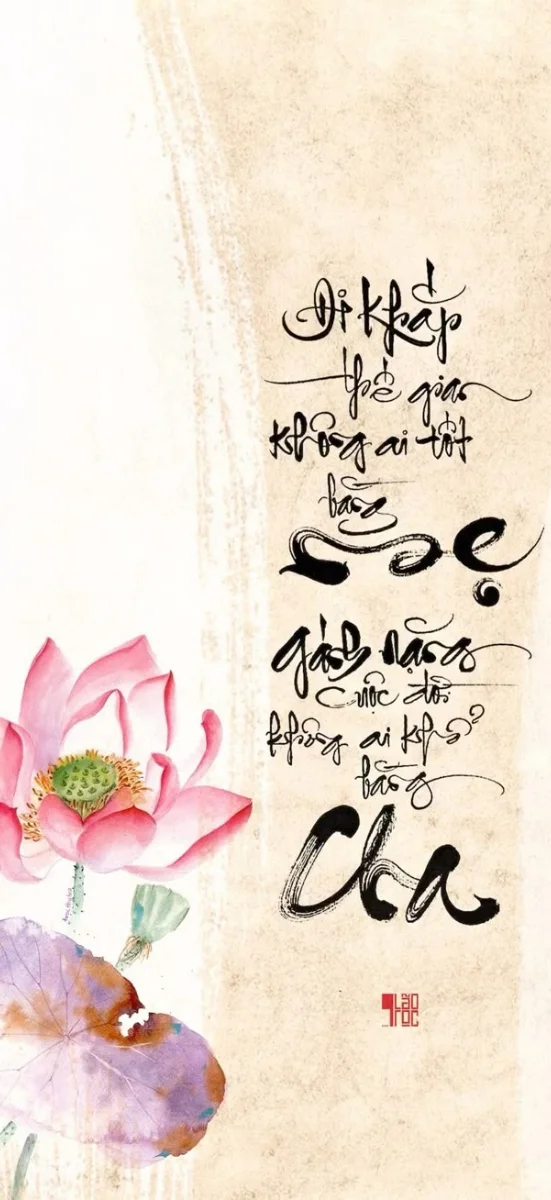 Đi khắp
thế gian
không ai tốt
bằng
mẹ
gánh nặng
cuộc đời
không ai khổ
bằng
Cha